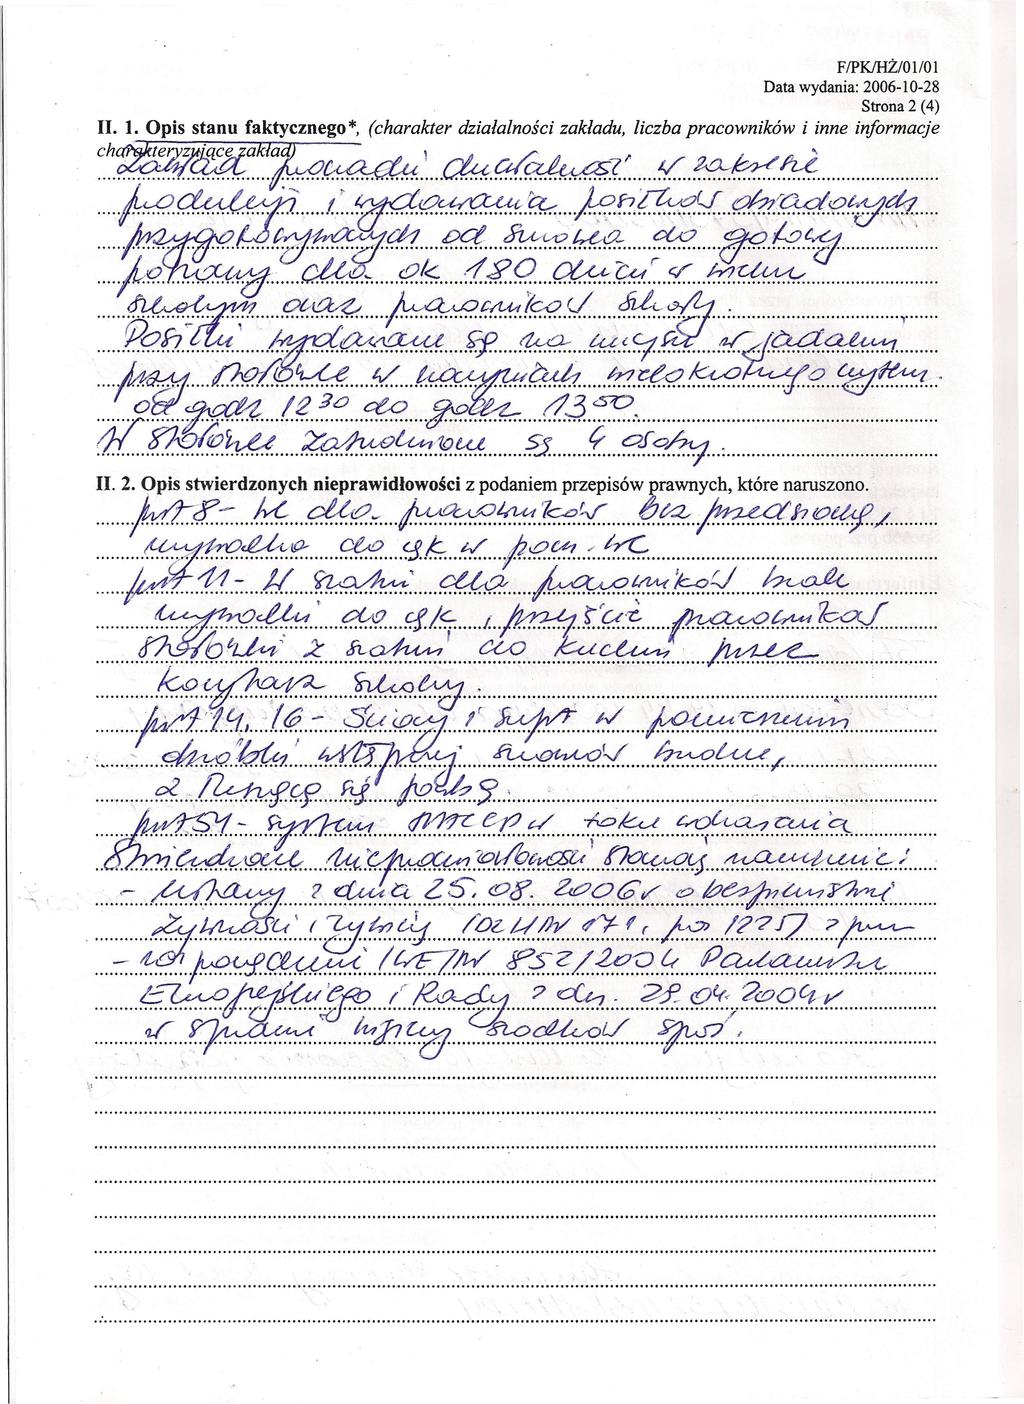 F/PK/HŻ/01/01
Data wydania: 2006-10-28
Strona 2 (4)
II. 1. Opis stanu faktycznego*, (charakter działalności zakładu, liczba pracowników i inne informacje
charakteryzujące zakład)
Zakład prowadzi działalność w zakresie
produkcji i wydawania posiłków obiadowych
przygotowywanych od surowca do gotowej
potrawy dla ok 180 dzieci w wieku
szkolnym oraz pracowników szkoły.
Posiłki wydawane są na miejscu w jadalni
przy stołówce w naczyniach wielokrotnego użytku
od godz 12 30 do godz 13 50.
W stołówce zatrudnione są 4 osoby.
II. 2. Opis stwierdzonych nieprawidłowości z podaniem przepisów prawnych, które naruszono.
pkt 8 - WC dla pracowników bez przedsionka,
umywalka do rąk w pom. WC
pkt 11 - W szatni dla pracowników brak
umywalki do rąk, przejście pracowników
stołówki z szatni do kuchni przez
korytarz szkolny.
pkt 14, 16 - Ściany i sufit w pomieszczeniu
obróbki wstępnej surowców brudne,
z łuszczącą się farbą.
pkt 54 - system HACCP w toku wdrażania
Stwierdzone nieprawidłowości stanowią naruszenie:
- Ustawy z dnia 25.08.2006r o bezpieczeństwie
żywności i żywienia (Dz U Nr 171, poz 1225) z
- rozporządzenie (WE) Nr 852/2004 Parlamentu
Europejskiego i Rady z dn. 29.04.2004r
w sprawie higieny środków spoż.